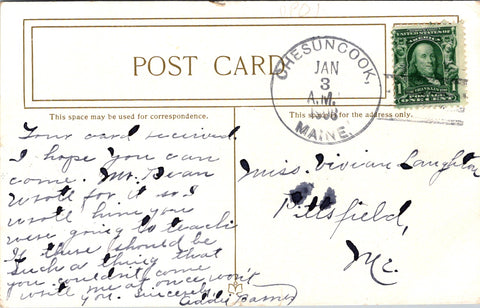 POST CARD
CHESUNCOOK,
JAN
3
A.M.
1908
MAINE.
This space may be used for correspondence.
This space is for the address only.
Your card received.
I hope you can
come. Mr. Dean
wrote for it so I
wrote him you
were going to teach
If there should be
such a thing that
you couldn't come
write me at once won't
you. Sincerely
Addie
Miss. Vivian
Pittsfield,
Me.
UNITED STATES OF AMERICA
POSTAGE
ONE CENT